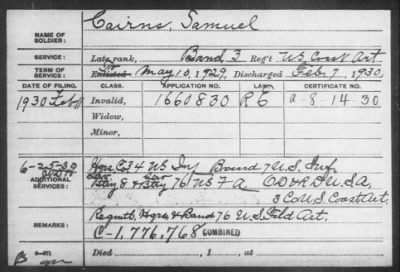 NAME OF SOLDIER: Cairns, Samuel
SERVICE: Late rank, Band 3 Reg't US Coast Art
TERM OF SERVICE: Enlisted May 10, 1929, Discharged Feb. 7, 1930
DATE OF FILING. CLASS. APPLICATION NO. LAW. CERTIFICATE NO.
1930 Feb Invalid, 1660830 RE a-8-14 30
Widow,
Minor,
6-25-30
ADDITIONAL SERVICES: Co 34 US Inf Band 7 U.S. Inf.
Btry 8 & Btry 76 US F A USA
3 Co U.S. Coast Art.
REMARKS: Hqrs & Band 76 U.S. Fld Art.
C-1,776,768 COMBINED
Died , 1 , at